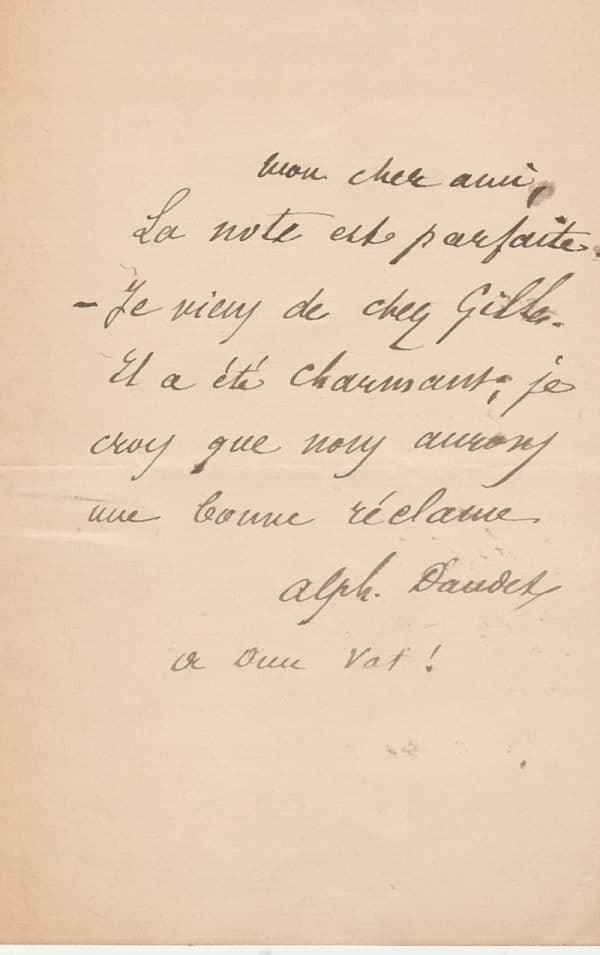 mon cher ami,
La note est parfaite.
- Je viens de chez Gille.
Il a été charmant; je
crois que nous aurons
une bonne réclame
Alph. Daudet
a Dieu vat!